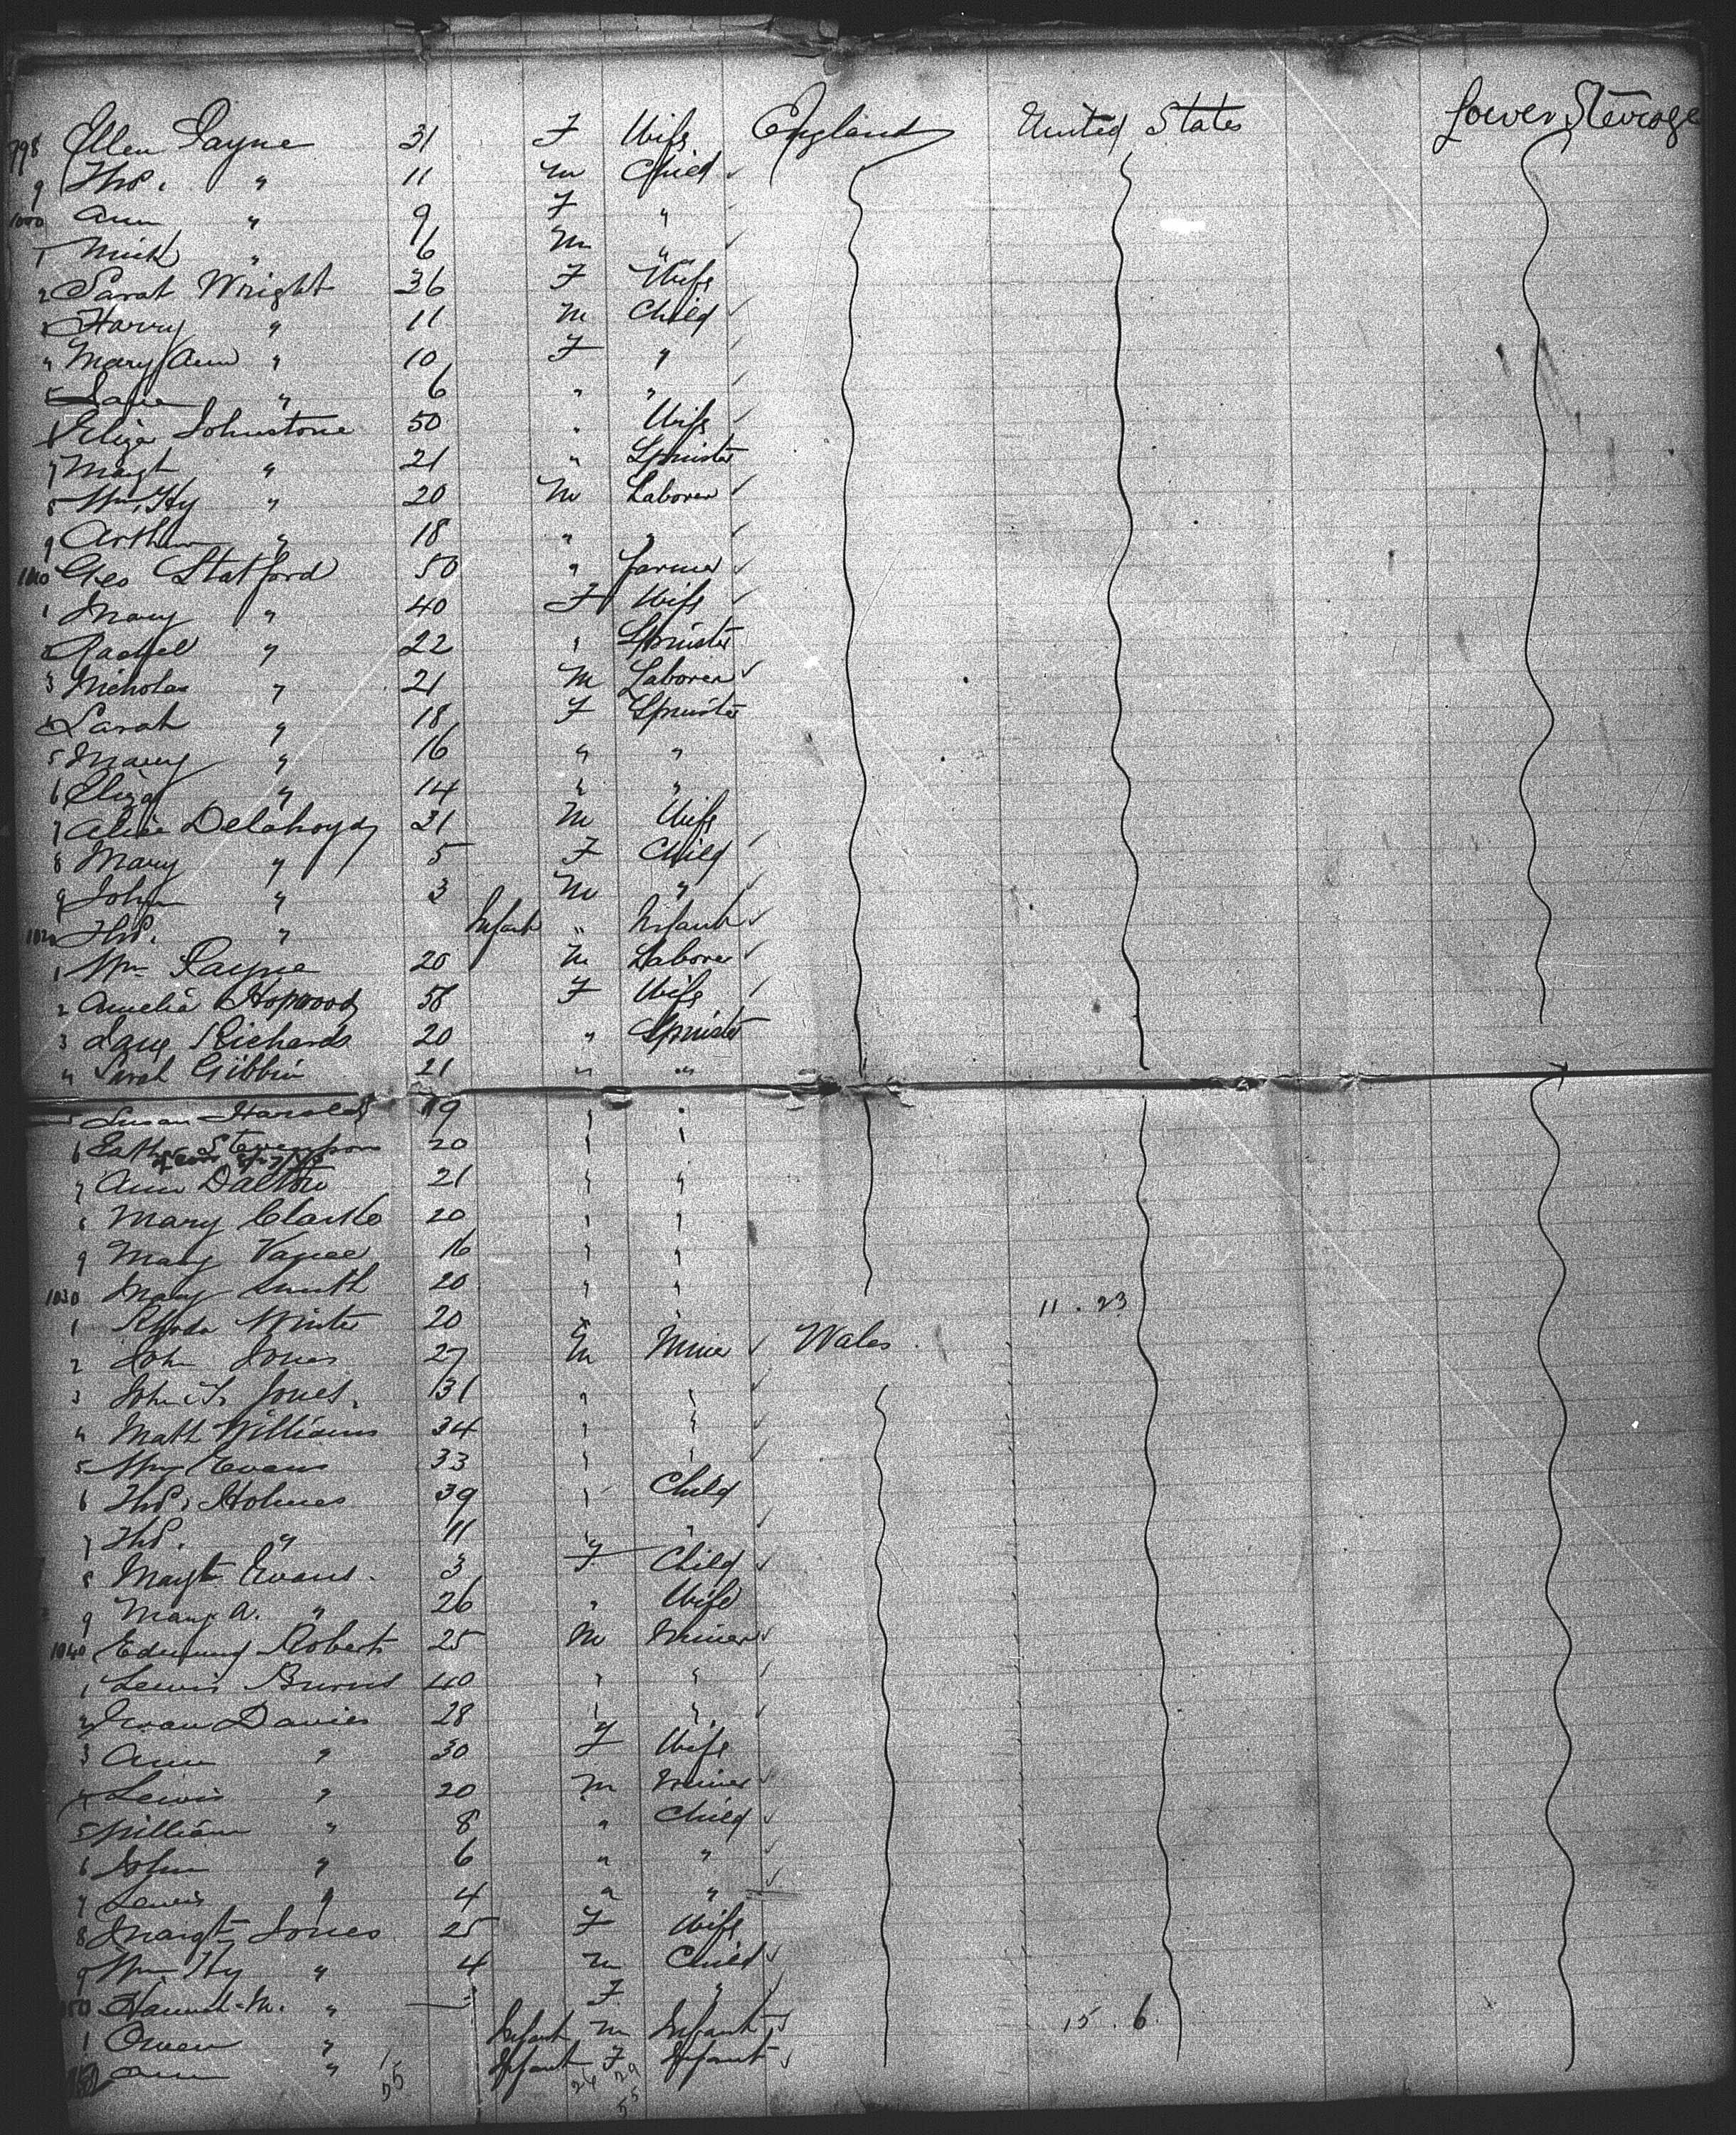 998 Ellen Payne 31 F Wife England United States Lower Steerage
9 Thos. " 11 m Child
1000 Ann " 9 F "
1 Mick " 6 m "
2 Sarah Wright 36 F Wife
3 Harry " 11 m Child
4 Mary Ann " 10 F "
5 " 6 " "
6 Eliza Johnstone 50 " Wife
7 Margt " 21 " Spinster
8 Wm Hy " 20 m Laborer
9 Arthur " 18 " "
1010 Geo Statford 50 " Farmer
1 Mary " 40 F Wife
2 Rachel " 22 " Spinster
3 Nicholas " 21 M Laborer
4 Sarah " 18 F Spinster
5 Mary " 16 " "
6 Eliza " 14 " "
7 Alice Delahoyd 21 M Wife
8 Mary " 5 F Child
9 John " 3 m "
1020 Thos. " Infant " Infant
1 Wm Payne 20 m Laborer
2 Amelia Hopwood F Wife
3 Jane Richards 20 " Spinster
4 Sarah Gibbin 21 " "
5 Susan Harold 19 " "
6 Stevenson 20 " "
7 Ann Dalton 21 " "
8 Mary Clarke 20 " "
9 Mary Vance 16 " "
1030 Mary Smith 20 " "
1 Rhoda Winter 20 " " 11 . 23
2 John Jones 27 m Miner Wales
3 John Jones. 31 " "
4 Math Williams 34 " "
5 Wm Evans 33 " "
6 Thos. Holmes 39 " Child
7 Thos. " 11 " "
8 Margt Evans. 3 F Child
9 Mary A. " 26 " Wife
1040 Edmund Roberts 25 M Miner
1 Lewis 40 " "
2 Evan Davies 28 " "
3 Ann " 30 F Wife
4 Lewis " 20 m Miner
5 William " 8 " Child
6 John " 6 " "
7 Lewis " 4 " "
8 Margt Jones 25 F Wife
9 Wm Hy " 4 m Child
1050 Hannah M. " — F "
1 Owen " Infant m Infant 15 . 6
Ann " Infant F Infant
55 26 29
55